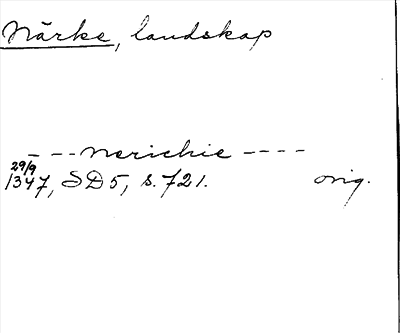 Närke, landskap
- - - Nerichie - - - -
29/9
1347, SD5, s. 721. orig.